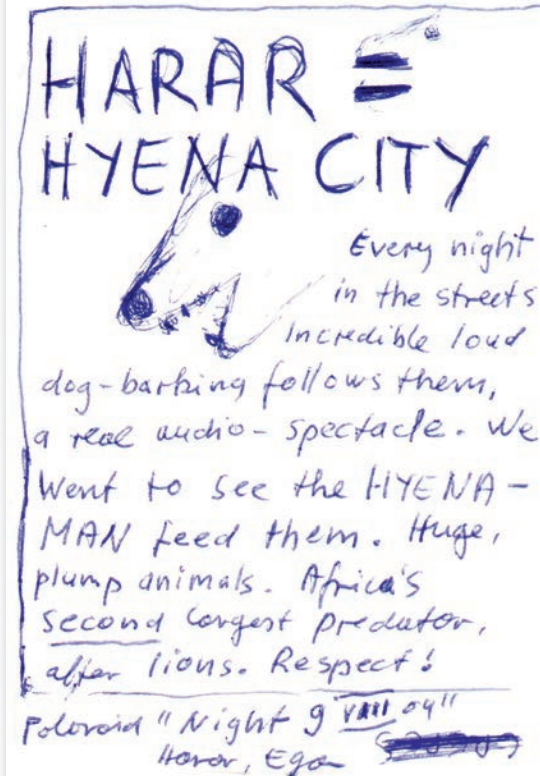 HARAR =
HYENA CITY
Every night
in the streets
Incredible loud
dog-barking follows them,
a real audio-spectacle. We
went to see the HYENA-
MAN feed them. Huge,
plump animals. Africa's
second largest predator,
after lions. Respect!
Poloroid "Night 9 VIII 04"
Harar, Ega